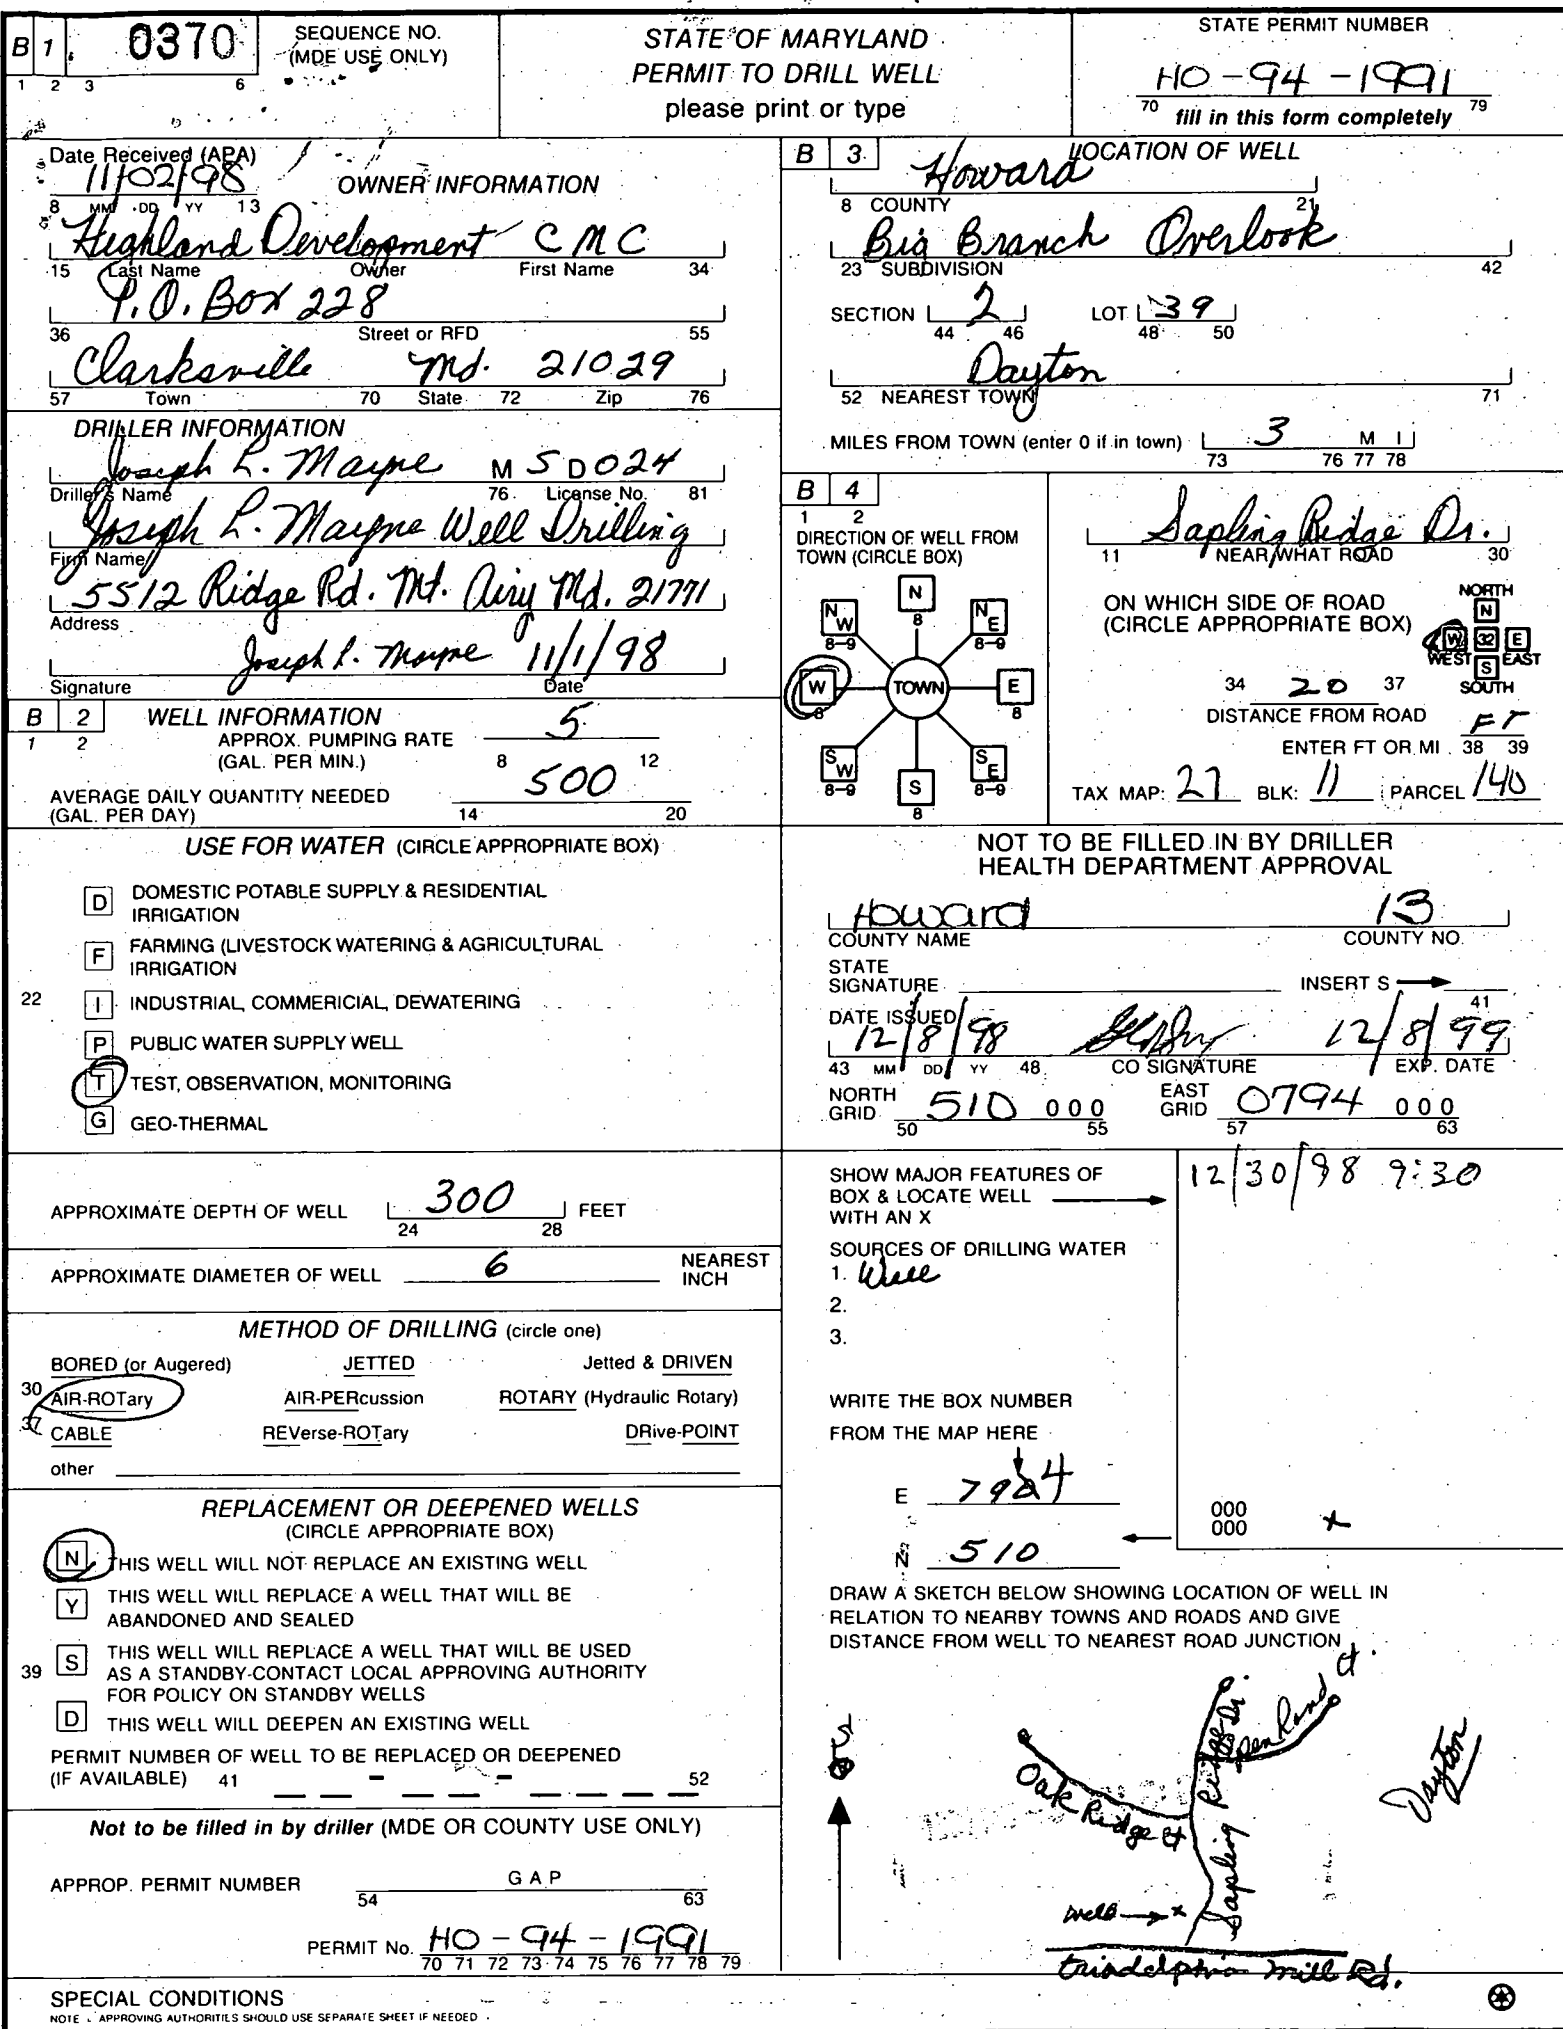 B 1 0370 SEQUENCE NO. (MDE USE ONLY)
1 2 3 6
STATE OF MARYLAND
PERMIT TO DRILL WELL
please print or type
STATE PERMIT NUMBER
HO-94-1991
70 fill in this form completely 79
Date Received (APA)
11/02/98
8 MM DD YY 13
OWNER INFORMATION
Highland Development CMC
15 Last Name Owner First Name 34
P.O. Box 228
36 Street or RFD 55
Clarksville Md. 21029
57 Town 70 State 72 Zip 76
DRILLER INFORMATION
Joseph L. Mayne M S D 024
Driller's Name 76 License No. 81
Joseph L. Mayne Well Drilling
Firm Name
5512 Ridge Rd. Mt. Airy Md. 21771
Address
Joseph L. Mayne 11/1/98
Signature Date
B 2 WELL INFORMATION
1 2
APPROX. PUMPING RATE 5
(GAL. PER MIN.) 8 12
AVERAGE DAILY QUANTITY NEEDED 500
(GAL. PER DAY) 14 20
USE FOR WATER (CIRCLE APPROPRIATE BOX)
D DOMESTIC POTABLE SUPPLY & RESIDENTIAL
IRRIGATION
F FARMING (LIVESTOCK WATERING & AGRICULTURAL
IRRIGATION
22 I INDUSTRIAL, COMMERICIAL, DEWATERING
P PUBLIC WATER SUPPLY WELL
T TEST, OBSERVATION, MONITORING
G GEO-THERMAL
APPROXIMATE DEPTH OF WELL 300 FEET
24 28
APPROXIMATE DIAMETER OF WELL 6 NEAREST
INCH
METHOD OF DRILLING (circle one)
BORED (or Augered) JETTED Jetted & DRIVEN
30 AIR-ROTary AIR-PERcussion ROTARY (Hydraulic Rotary)
37 CABLE REVerse-ROTary DRive-POINT
other
REPLACEMENT OR DEEPENED WELLS
(CIRCLE APPROPRIATE BOX)
N THIS WELL WILL NOT REPLACE AN EXISTING WELL
Y THIS WELL WILL REPLACE A WELL THAT WILL BE
ABANDONED AND SEALED
39 S THIS WELL WILL REPLACE A WELL THAT WILL BE USED
AS A STANDBY-CONTACT LOCAL APPROVING AUTHORITY
FOR POLICY ON STANDBY WELLS
D THIS WELL WILL DEEPEN AN EXISTING WELL
PERMIT NUMBER OF WELL TO BE REPLACED OR DEEPENED
(IF AVAILABLE) 41 - - 52
Not to be filled in by driller (MDE OR COUNTY USE ONLY)
APPROP. PERMIT NUMBER G A P
54 63
PERMIT No. HO-94-1991
70 71 72 73 74 75 76 77 78 79
SPECIAL CONDITIONS
NOTE - APPROVING AUTHORITIES SHOULD USE SEPARATE SHEET IF NEEDED
B 3 LOCATION OF WELL
Howard
8 COUNTY 21
Big Branch Overlook
23 SUBDIVISION 42
SECTION 2 LOT 39
44 46 48 50
Dayton
52 NEAREST TOWN 71
MILES FROM TOWN (enter 0 if in town) 3 M I
73 76 77 78
B 4
1 2
DIRECTION OF WELL FROM
TOWN (CIRCLE BOX)
N
8
NW NE
8-9 8-9
W TOWN E
8 8
SW SE
8-9 8-9
S
8
Sapling Ridge Dr.
11 NEAR WHAT ROAD 30
ON WHICH SIDE OF ROAD
(CIRCLE APPROPRIATE BOX)
NORTH
N
W 32 E
WEST EAST
S
SOUTH
34 20 37
DISTANCE FROM ROAD FT
ENTER FT OR MI 38 39
TAX MAP: 27 BLK: 11 PARCEL 140
NOT TO BE FILLED IN BY DRILLER
HEALTH DEPARTMENT APPROVAL
Howard 13
COUNTY NAME COUNTY NO.
STATE
SIGNATURE INSERT S
41
DATE ISSUED
12/8/98 12/8/99
43 MM DD YY 48 CO SIGNATURE EXP. DATE
NORTH GRID 510 000 EAST GRID 0794 000
50 55 57 63
SHOW MAJOR FEATURES OF
BOX & LOCATE WELL
WITH AN X
12/30/98 9:30
SOURCES OF DRILLING WATER
1. Well
2.
3.
WRITE THE BOX NUMBER
FROM THE MAP HERE
E 794
N 510
000
000 x
DRAW A SKETCH BELOW SHOWING LOCATION OF WELL IN
RELATION TO NEARBY TOWNS AND ROADS AND GIVE
DISTANCE FROM WELL TO NEAREST ROAD JUNCTION
Oak Ridge Ct
Sapling Ridge Dr.
Dayton
well x
Triadelphia Mill Rd.